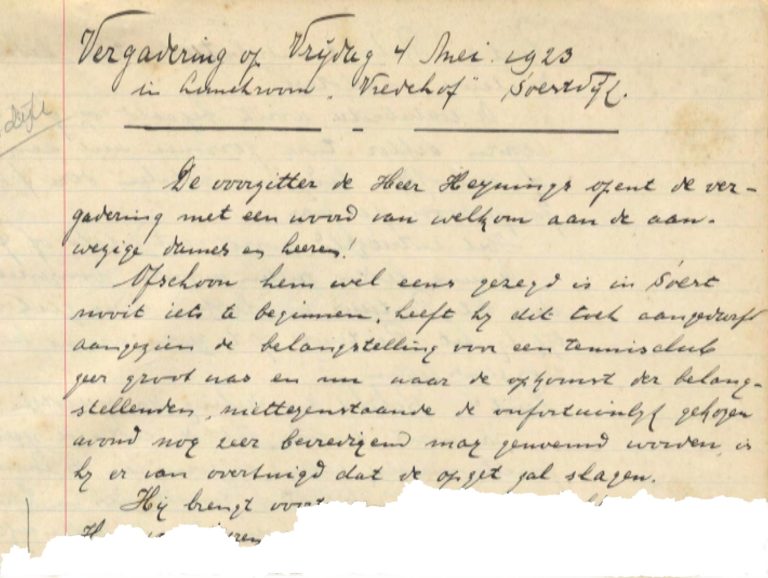 Vergadering op Vrijdag 4 Mei. 1923
in Lunchroom "Vredehof" Soestdijk.
De voorzitter de Heer Heynings opent de ver-
gadering met een woord van welkom aan de aan-
wezige dames en heeren!
Ofschoon hem wel eens gezegd is in Soest
nooit iets te beginnen, heeft hij dit toch aangedurfd
aangezien de belangstelling voor een tennisclub
zeer groot was en nu waar de opkomst der belang-
stellenden, niettegenstaande de onfortuinlijk gekozen
avond nog zeer bevredigend mag genoemd worden, is
hij er van overtuigd dat de opzet zal slagen.
Hij brengt